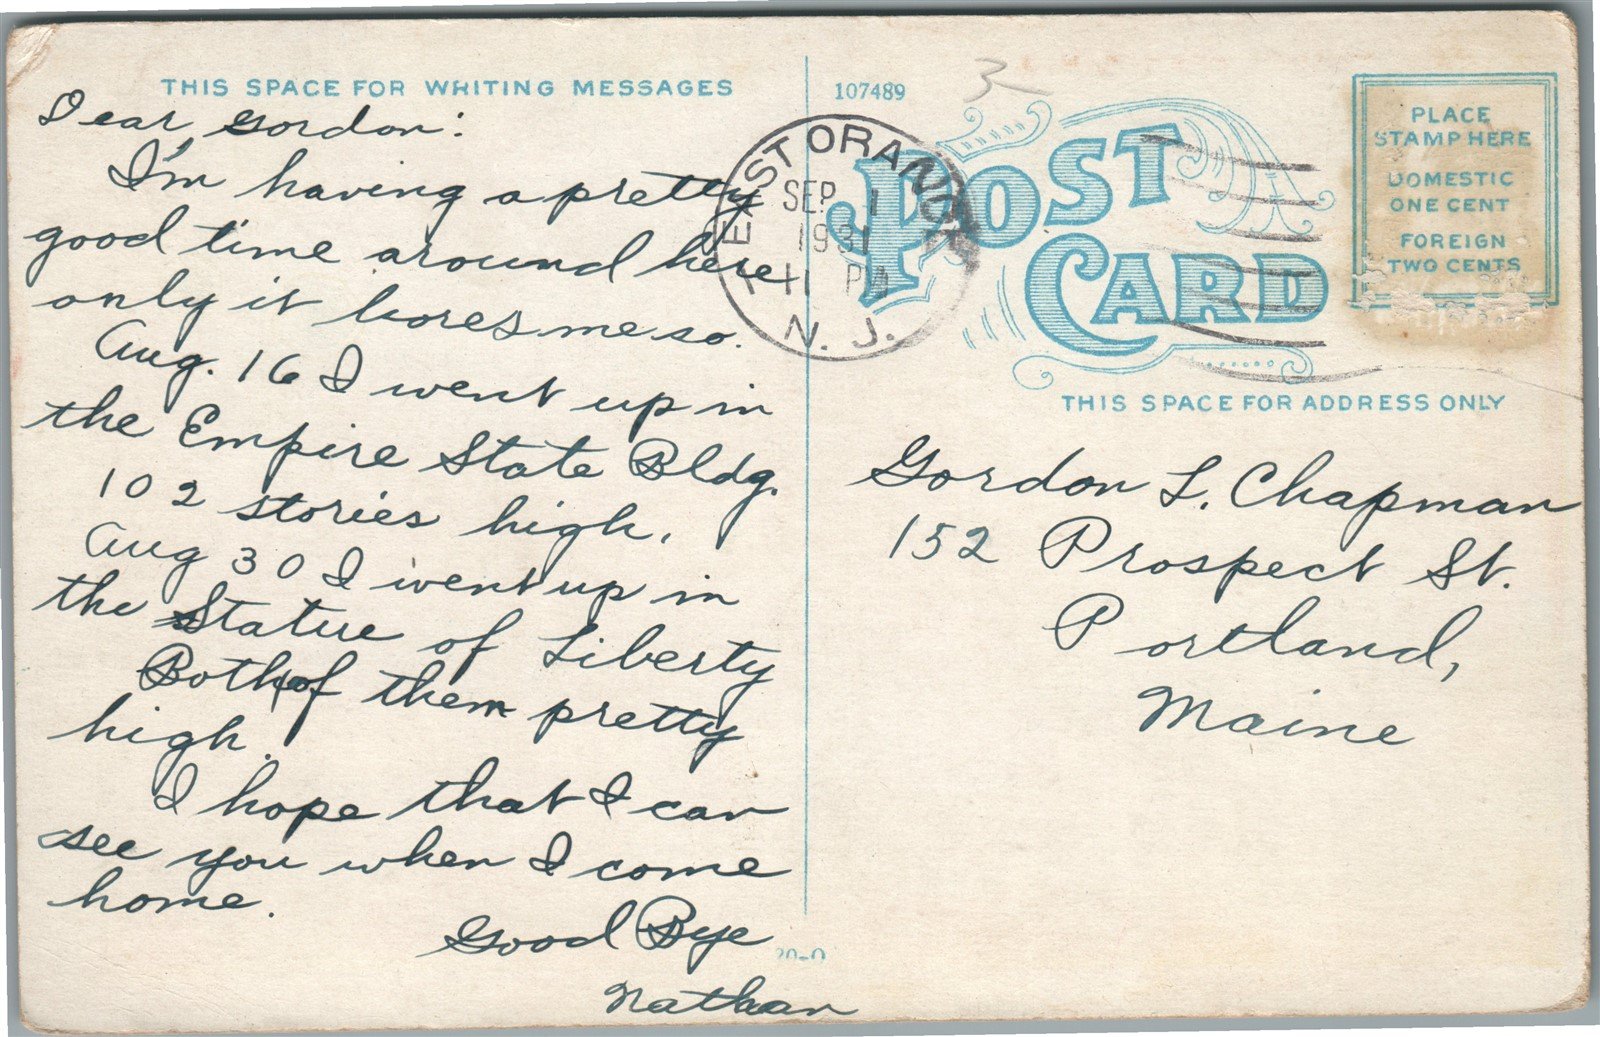 THIS SPACE FOR WRITING MESSAGES
Dear Gordon:
I'm having a pretty
good time around here
only it bores me so.
Aug. 16 I went up in
the Empire State Bldg.
102 stories high.
Aug 30 I went up in
the Statue of Liberty
Both of them pretty
high.
I hope that I can
see you when I come
home.
Good Bye
Nathan
107489
3
EAST ORANGE
SEP 1
1931
11 PM
N. J.
POST
CARD
PLACE
STAMP HERE
DOMESTIC
ONE CENT
FOREIGN
TWO CENTS
THIS SPACE FOR ADDRESS ONLY
Gordon L. Chapman
152 Prospect St.
Portland,
Maine